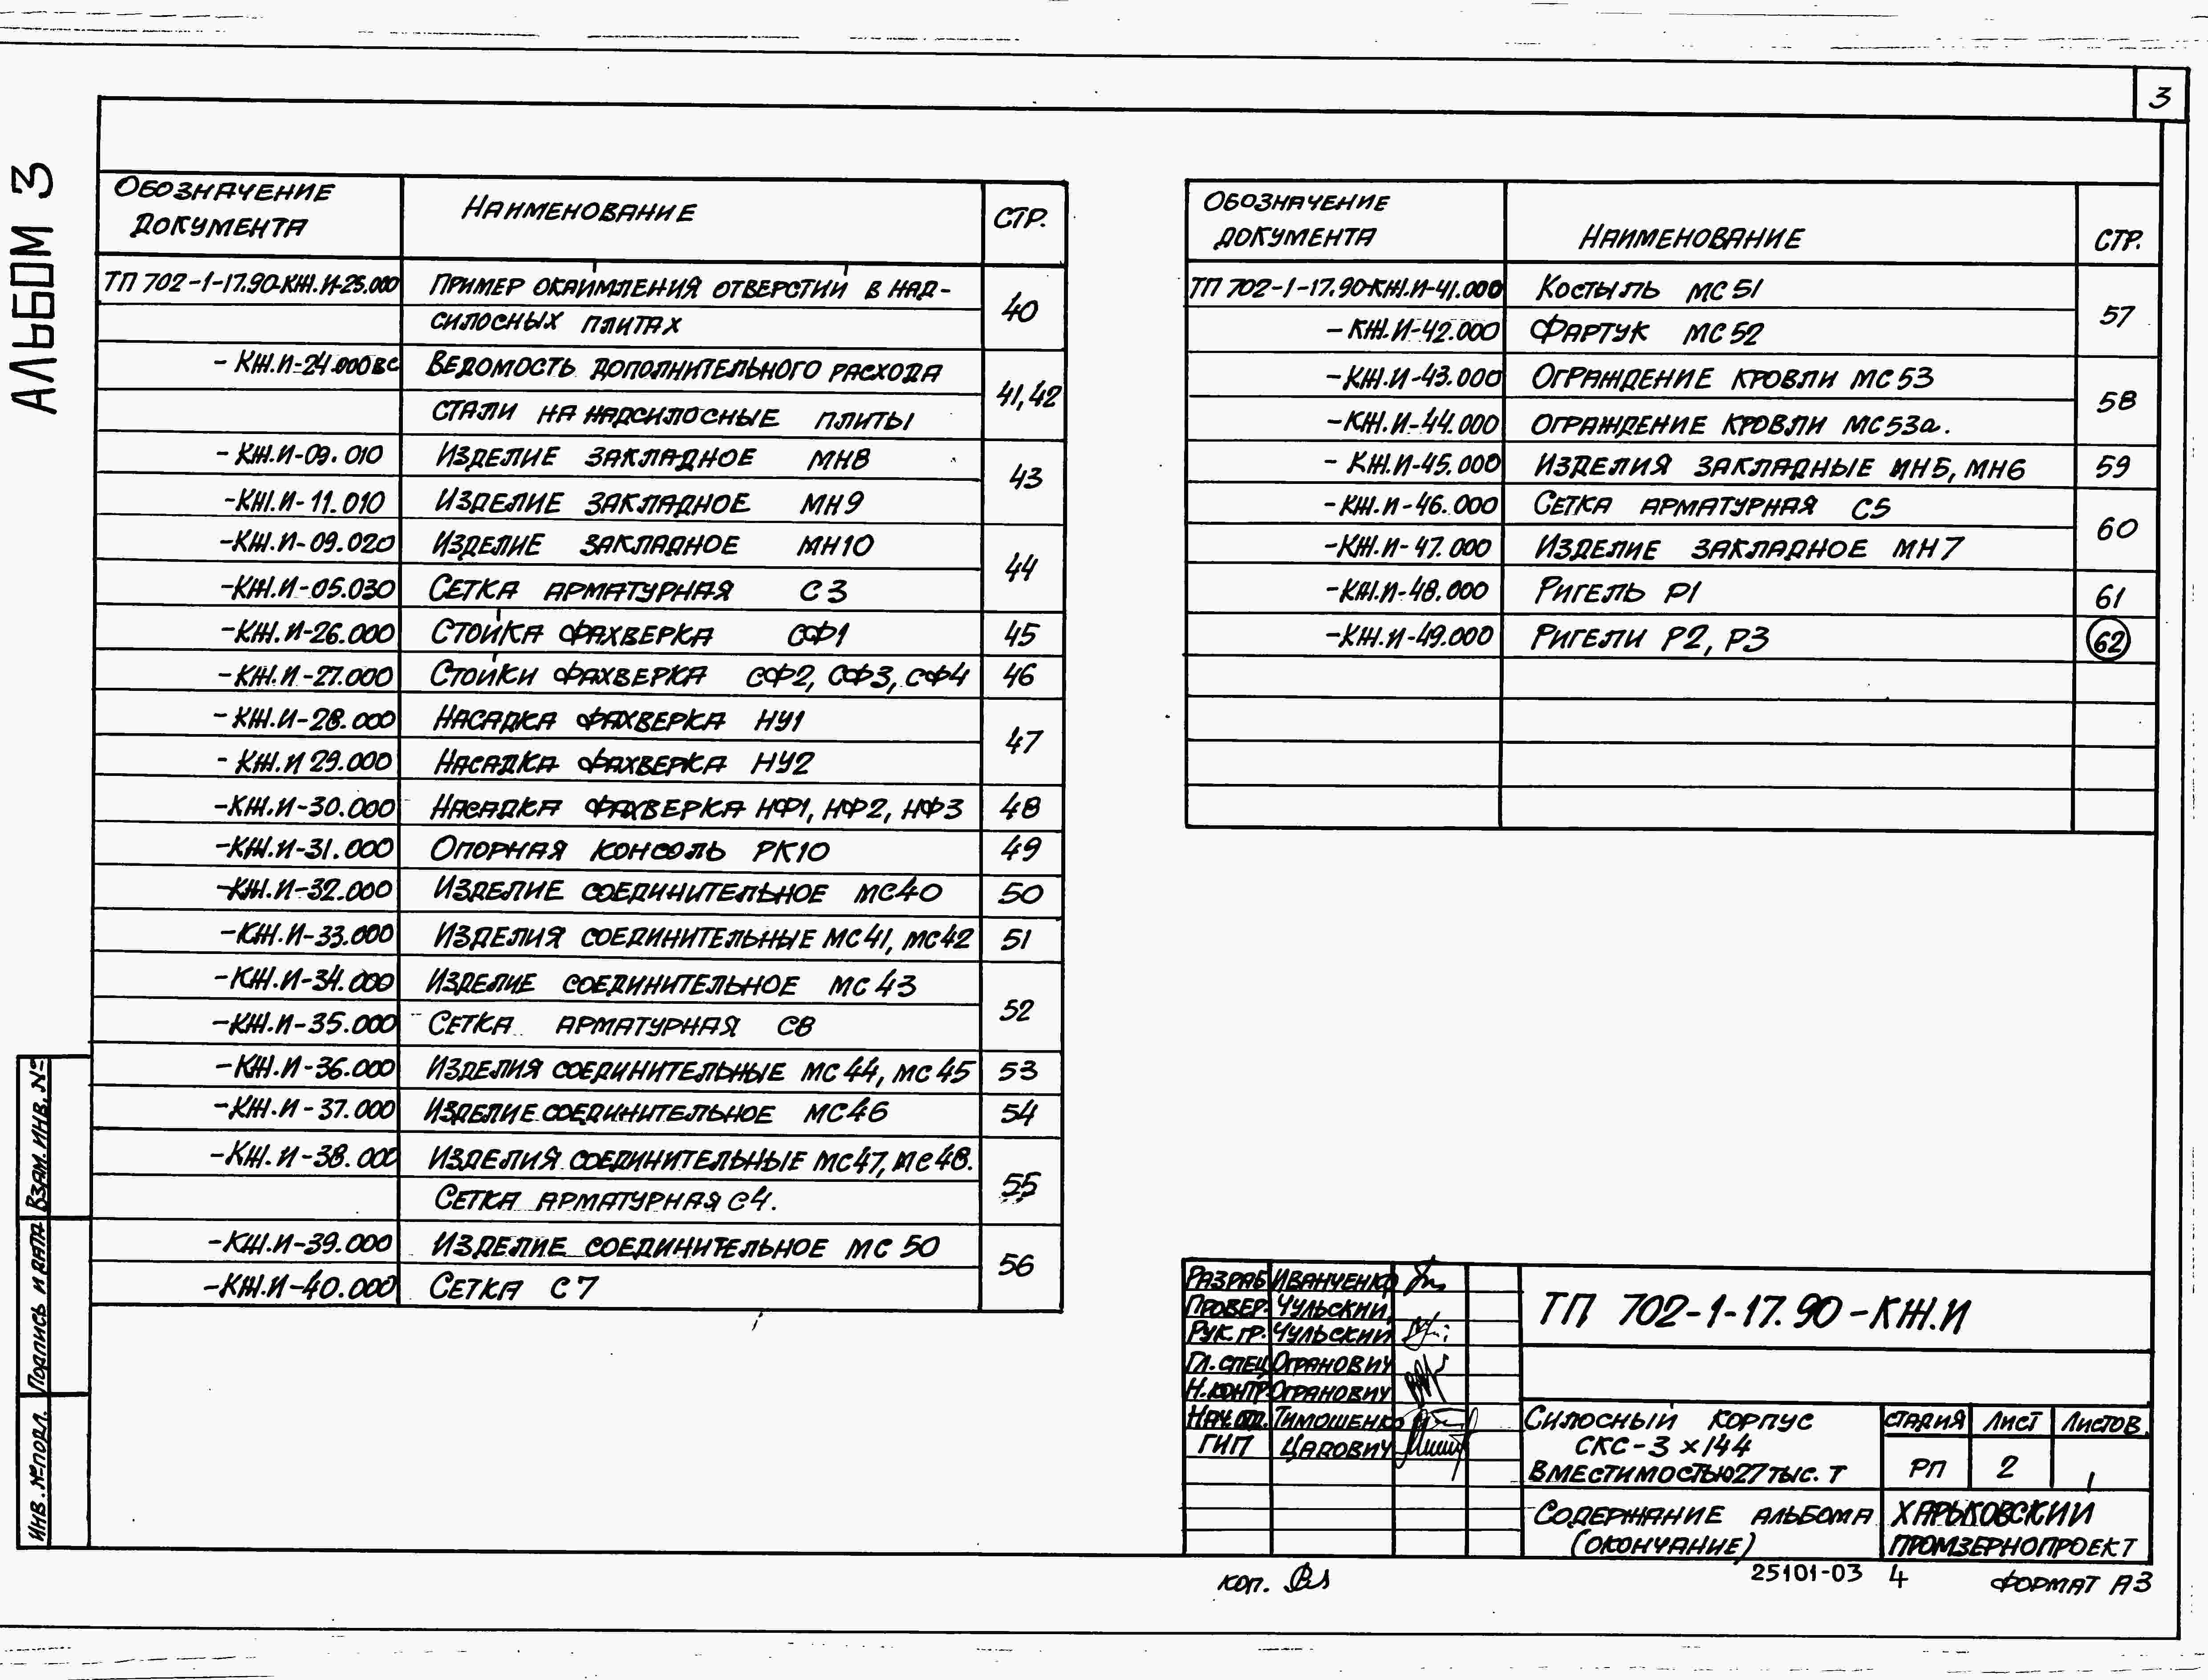 3
АЛЬБОМ 3
ОБОЗНАЧЕНИЕ ДОКУМЕНТА НАИМЕНОВАНИЕ СТР.
ТП 702-1-17.90-КЖ.И-25.000 ПРИМЕР ОКАЙМЛЕНИЯ ОТВЕРСТИЙ В НАД-
СИЛОСНЫХ ПЛИТАХ 40
-КЖ.И-24.000ВС ВЕДОМОСТЬ ДОПОЛНИТЕЛЬНОГО РАСХОДА
СТАЛИ НА НАДСИЛОСНЫЕ ПЛИТЫ 41,42
-КЖ.И-09.010 ИЗДЕЛИЕ ЗАКЛАДНОЕ МН8 43
-КЖ.И-11.010 ИЗДЕЛИЕ ЗАКЛАДНОЕ МН9
-КЖ.И-09.020 ИЗДЕЛИЕ ЗАКЛАДНОЕ МН10 44
-КЖ.И-05.030 СЕТКА АРМАТУРНАЯ С3
-КЖ.И-26.000 СТОЙКА ФАХВЕРКА СФ1 45
-КЖ.И-27.000 СТОЙКИ ФАХВЕРКА СФ2, СФ3, СФ4 46
-КЖ.И-28.000 НАСАДКА ФАХВЕРКА НУ1 47
-КЖ.И 29.000 НАСАДКА ФАХВЕРКА НУ2
-КЖ.И-30.000 НАСАДКА ФАХВЕРКА НФ1, НФ2, НФ3 48
-КЖ.И-31.000 ОПОРНАЯ КОНСОЛЬ РК10 49
-КЖ.И-32.000 ИЗДЕЛИЕ СОЕДИНИТЕЛЬНОЕ МС40 50
-КЖ.И-33.000 ИЗДЕЛИЯ СОЕДИНИТЕЛЬНЫЕ МС41, МС42 51
-КЖ.И-34.000 ИЗДЕЛИЕ СОЕДИНИТЕЛЬНОЕ МС43 52
-КЖ.И-35.000 СЕТКА АРМАТУРНАЯ С8
-КЖ.И-36.000 ИЗДЕЛИЯ СОЕДИНИТЕЛЬНЫЕ МС44, МС45 53
-КЖ.И-37.000 ИЗДЕЛИЕ СОЕДИНИТЕЛЬНОЕ МС46 54
-КЖ.И-38.000 ИЗДЕЛИЯ СОЕДИНИТЕЛЬНЫЕ МС47, МС48.
СЕТКА АРМАТУРНАЯ С4. 55
-КЖ.И-39.000 ИЗДЕЛИЕ СОЕДИНИТЕЛЬНОЕ МС 50 56
-КЖ.И-40.000 СЕТКА С7
ОБОЗНАЧЕНИЕ ДОКУМЕНТА НАИМЕНОВАНИЕ СТР.
ТП 702-1-17.90-КЖ.И-41.000 КОСТЫЛЬ МС51 57
-КЖ.И-42.000 ФАРТУК МС52
-КЖ.И-43.000 ОГРАЖДЕНИЕ КРОВЛИ МС53 58
-КЖ.И-44.000 ОГРАЖДЕНИЕ КРОВЛИ МС53а.
-КЖ.И-45.000 ИЗДЕЛИЯ ЗАКЛАДНЫЕ МН5, МН6 59
-КЖ.И-46.000 СЕТКА АРМАТУРНАЯ С5 60
-КЖ.И-47.000 ИЗДЕЛИЕ ЗАКЛАДНОЕ МН7
-КЖ.И-48.000 РИГЕЛЬ Р1 61
-КЖ.И-49.000 РИГЕЛИ Р2, Р3 62
ВЗАМ. ИНВ. №
ПОДПИСЬ И ДАТА
ИНВ. № ПОДЛ.
РАЗРАБ ИВАНЧЕНКО
ПРОВЕР. ЧУЛЬСКИЙ
РУК. ГР. ЧУЛЬСКИЙ
ГЛ. СПЕЦ ОГРАНОВИЧ
Н. КОНТР. ОГРАНОВИЧ
НАЧ. ОТД. ТИМОШЕНКО
ГИП ЦАДОВИЧ
ТП 702-1-17.90-КЖ.И
СИЛОСНЫЙ КОРПУС
СКС-3 х 144
ВМЕСТИМОСТЬЮ 27 ТЫС. Т
СТАДИЯ ЛИСТ ЛИСТОВ
РП 2
СОДЕРЖАНИЕ АЛЬБОМА
(ОКОНЧАНИЕ)
ХАРЬКОВСКИЙ
ПРОМЗЕРНОПРОЕКТ
КОП.
25101-03 4 ФОРМАТ А3